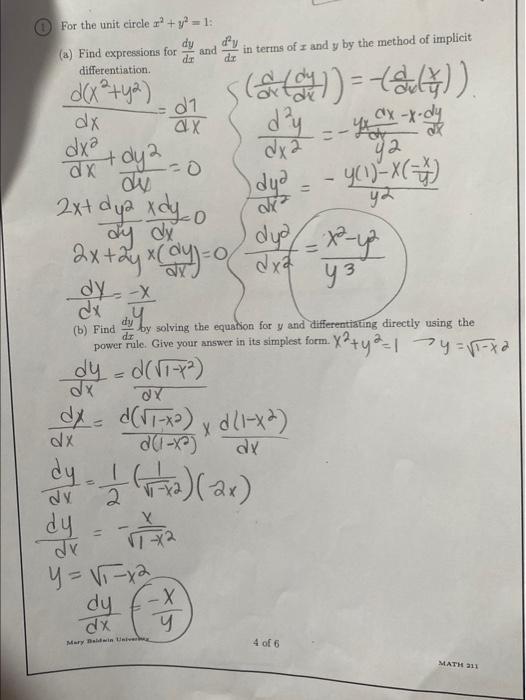 1 For the unit circle x² + y² = 1:
(a) Find expressions for dy/dx and d²y/dx in terms of x and y by the method of implicit
differentiation.
d(x²+y²)/dx = d1/dx
dx²/dx + dy²/dx = 0
2x + dy²/dy × dy/dx = 0
2x + 2y × (dy/dx) = 0
dy/dx = -x/y
(d/dx (dy/dx)) = -(d/dx (x/y))
d²y/dx² = - y dx/dx - x·dy/dx / y²
dy²/dx² = - y(1) - x(-x/y) / y²
dy²/dx² = x²-y²/y³
(b) Find dy/dx by solving the equation for y and differentiating directly using the
power rule. Give your answer in its simplest form. x²+y²=1 → y=√1-x²
dy/dx = d(√1-x²)/dx
dx/dx = d(√1-x²)/d(1-x²) × d(1-x²)/dx
dy/dx = 1/2 (1/√1-x²)(-2x)
dy/dx = - x/√1-x²
y = √1-x²
dy/dx = -x/y
Mary Baldwin University
4 of 6
MATH 211